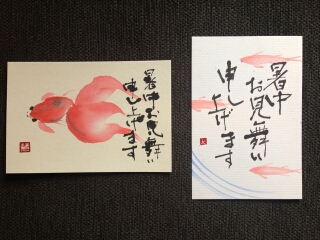 暑中お見舞い
申し上げます
暑中
お見舞い
申し
上げます